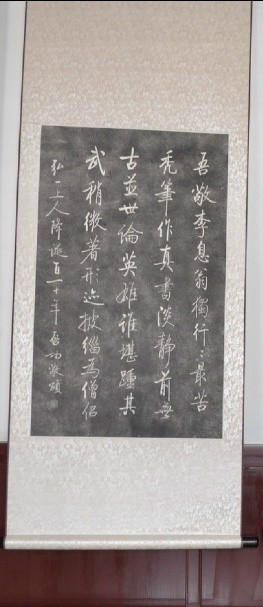 吾敬李息翁獨行〻最苦
禿筆作真書淡静前無
古並世論英雄誰堪踵其
武稍微著形迹披緇為僧侣
弘一上人降誕百一十年啟功敬頌